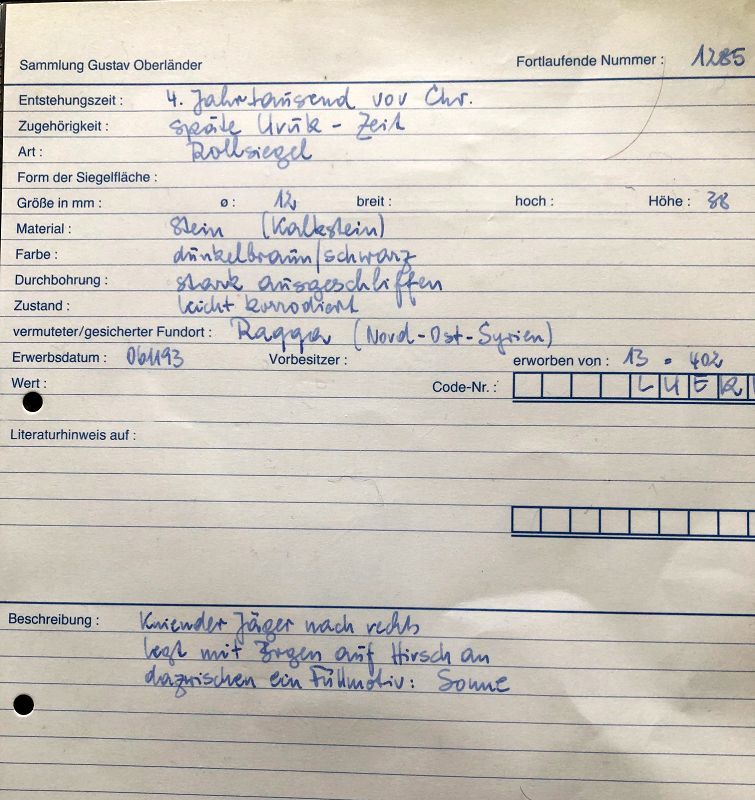 Sammlung Gustav Oberländer Fortlaufende Nummer : 1285
Entstehungszeit : 4. Jahrtausend vor Chr.
Zugehörigkeit : späte Uruk - Zeit
Art : Rollsiegel
Form der Siegelfläche :
Größe in mm : ø : 12 breit : hoch : Höhe : 38
Material : Stein (Kalkstein)
Farbe : dunkelbraun/schwarz
Durchbohrung : stark ausgeschliffen
Zustand : leicht korrodiert
vermuteter/gesicherter Fundort : Raqqa (Nord-Ost-Syrien)
Erwerbsdatum : Vorbesitzer : erworben von : 13 = 402
Wert : Code-Nr. : L U E R
Literaturhinweis auf :
Beschreibung : Kniender Jäger nach rechts
legt mit Bogen auf Hirsch an
dazwischen ein Füllmotiv: Sonne